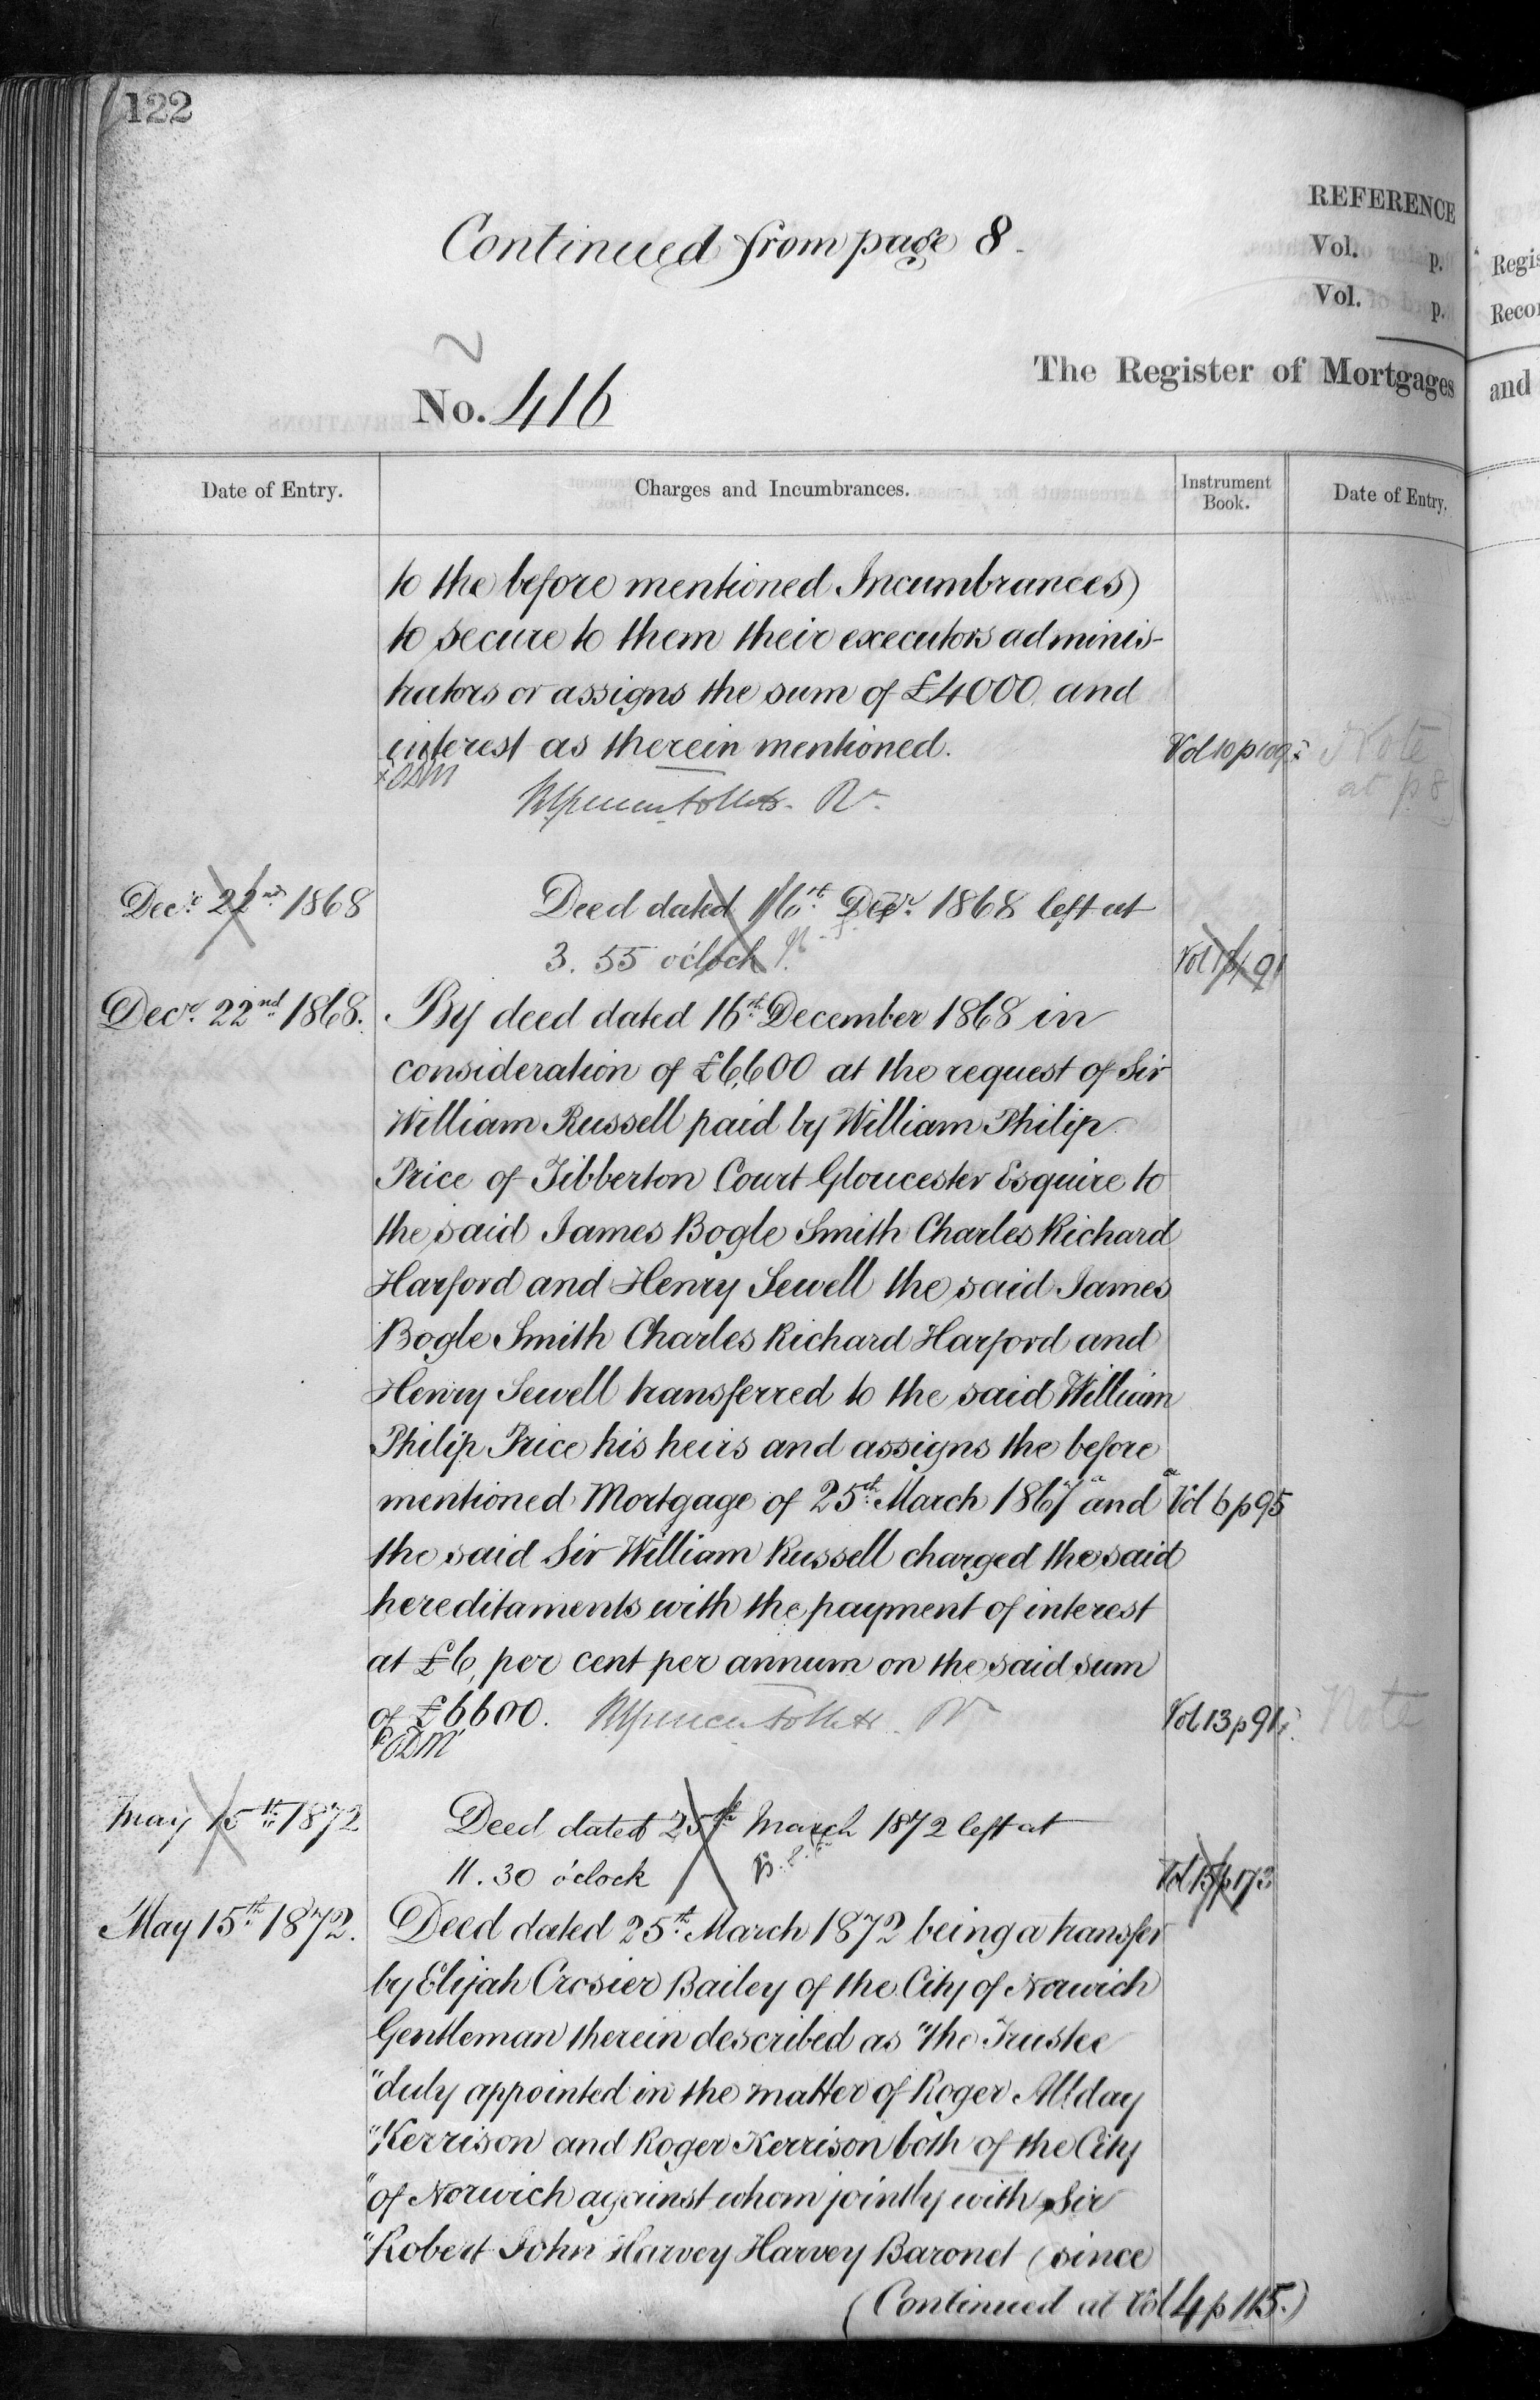 122
Continued from page 8.
REFERENCE
Vol. p.
Vol. p.
No. 416
The Register of Mortgages
Regis
Recor
and
Date of Entry.
Charges and Incumbrances.
Instrument Book.
Date of Entry.
to the before mentioned Incumbrances)
to secure to them their executors adminis-
trators or assigns the sum of £4000 and
interest as therein mentioned. Vol 10 p 109 Note
at p 8
Decr. 22nd 1868 Deed dated 16th Decr. 1868 left at
3. 55 o'clock Vol 13 p 91
Decr. 22nd 1868. By deed dated 16th December 1868 in
consideration of £6,600 at the request of Sir
William Russell paid by William Philip
Price of Tibberton Court Gloucester Esquire to
the said James Bogle Smith Charles Richard
Harford and Henry Sewell the said James
Bogle Smith Charles Richard Harford and
Henry Sewell transferred to the said William
Philip Price his heirs and assigns the before
mentioned Mortgage of 25th March 1867 and Vol 6 p 95
the said Sir William Russell charged the said
hereditaments with the payment of interest
at £6, per cent per annum on the said sum
of £6600. Vol 13 p 91. Note
May 15th 1872 Deed dated 25th March 1872 left at
11. 30 o'clock Vol 15 p 173
May 15th 1872. Deed dated 25th March 1872 being a transfer
by Elijah Crosier Bailey of the City of Norwich
Gentleman therein described as "the Trustee
"duly appointed in the matter of Roger Allday
"Kerrison and Roger Kerrison both of the City
"of Norwich against whom jointly with Sir
"Robert John Harvey Harvey Baronet (since
(Continued at Vol 4 p 115.)